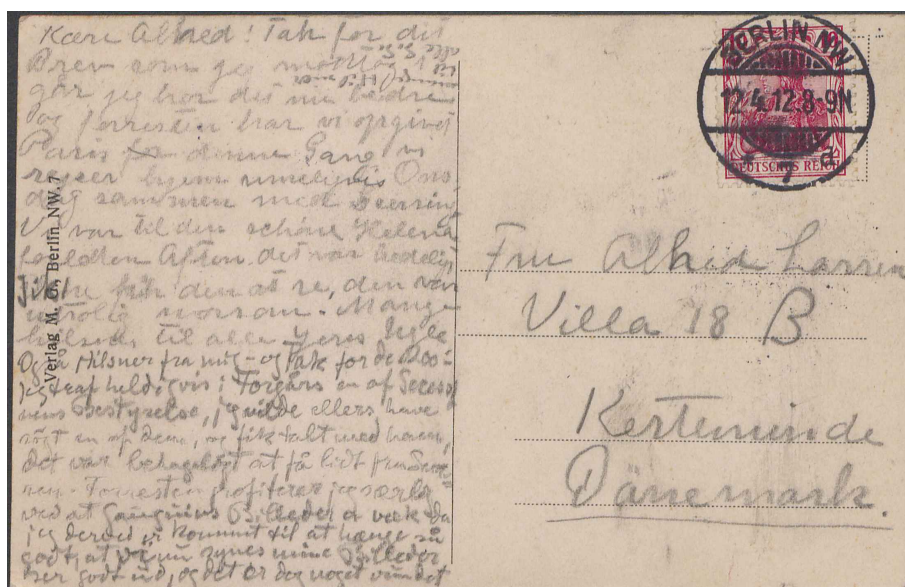 Kære Alhed! Tak for dit
Brev som jeg modtog i
går jeg har det nu bedre
og forresten har vi opgivet
Paris denne Gang vi
rejser hjem Ons-
dag sammen med
Vi var til den schöne Helena
Aften. det var
den at se, den var
morsom. Mange
til alle Jeres Ugle
Også Hilsner fra mig - og Tak for de 200:
Jeg traf heldigvis i Forgårs en af Secess
nens Bestyrelse, jeg vilde ellers have
søgt en af dem, og fik talt med ham,
det var behageligt at få lidt
Forresten profiterer jeg
ved at Gauguins Billeder er væk da
jeg derved er kommet til at hænge så
godt, at nu synes mine Billeder
ser godt ud, og det er dog noget vundet
Verlag M. O., Berlin NW. 7
BERLIN NW
12.4.12.8-9N
* 7 a
DEUTSCHES REICH
Fru Alhed Larsen
Villa 18 B
Kerteminde
Dänemark.